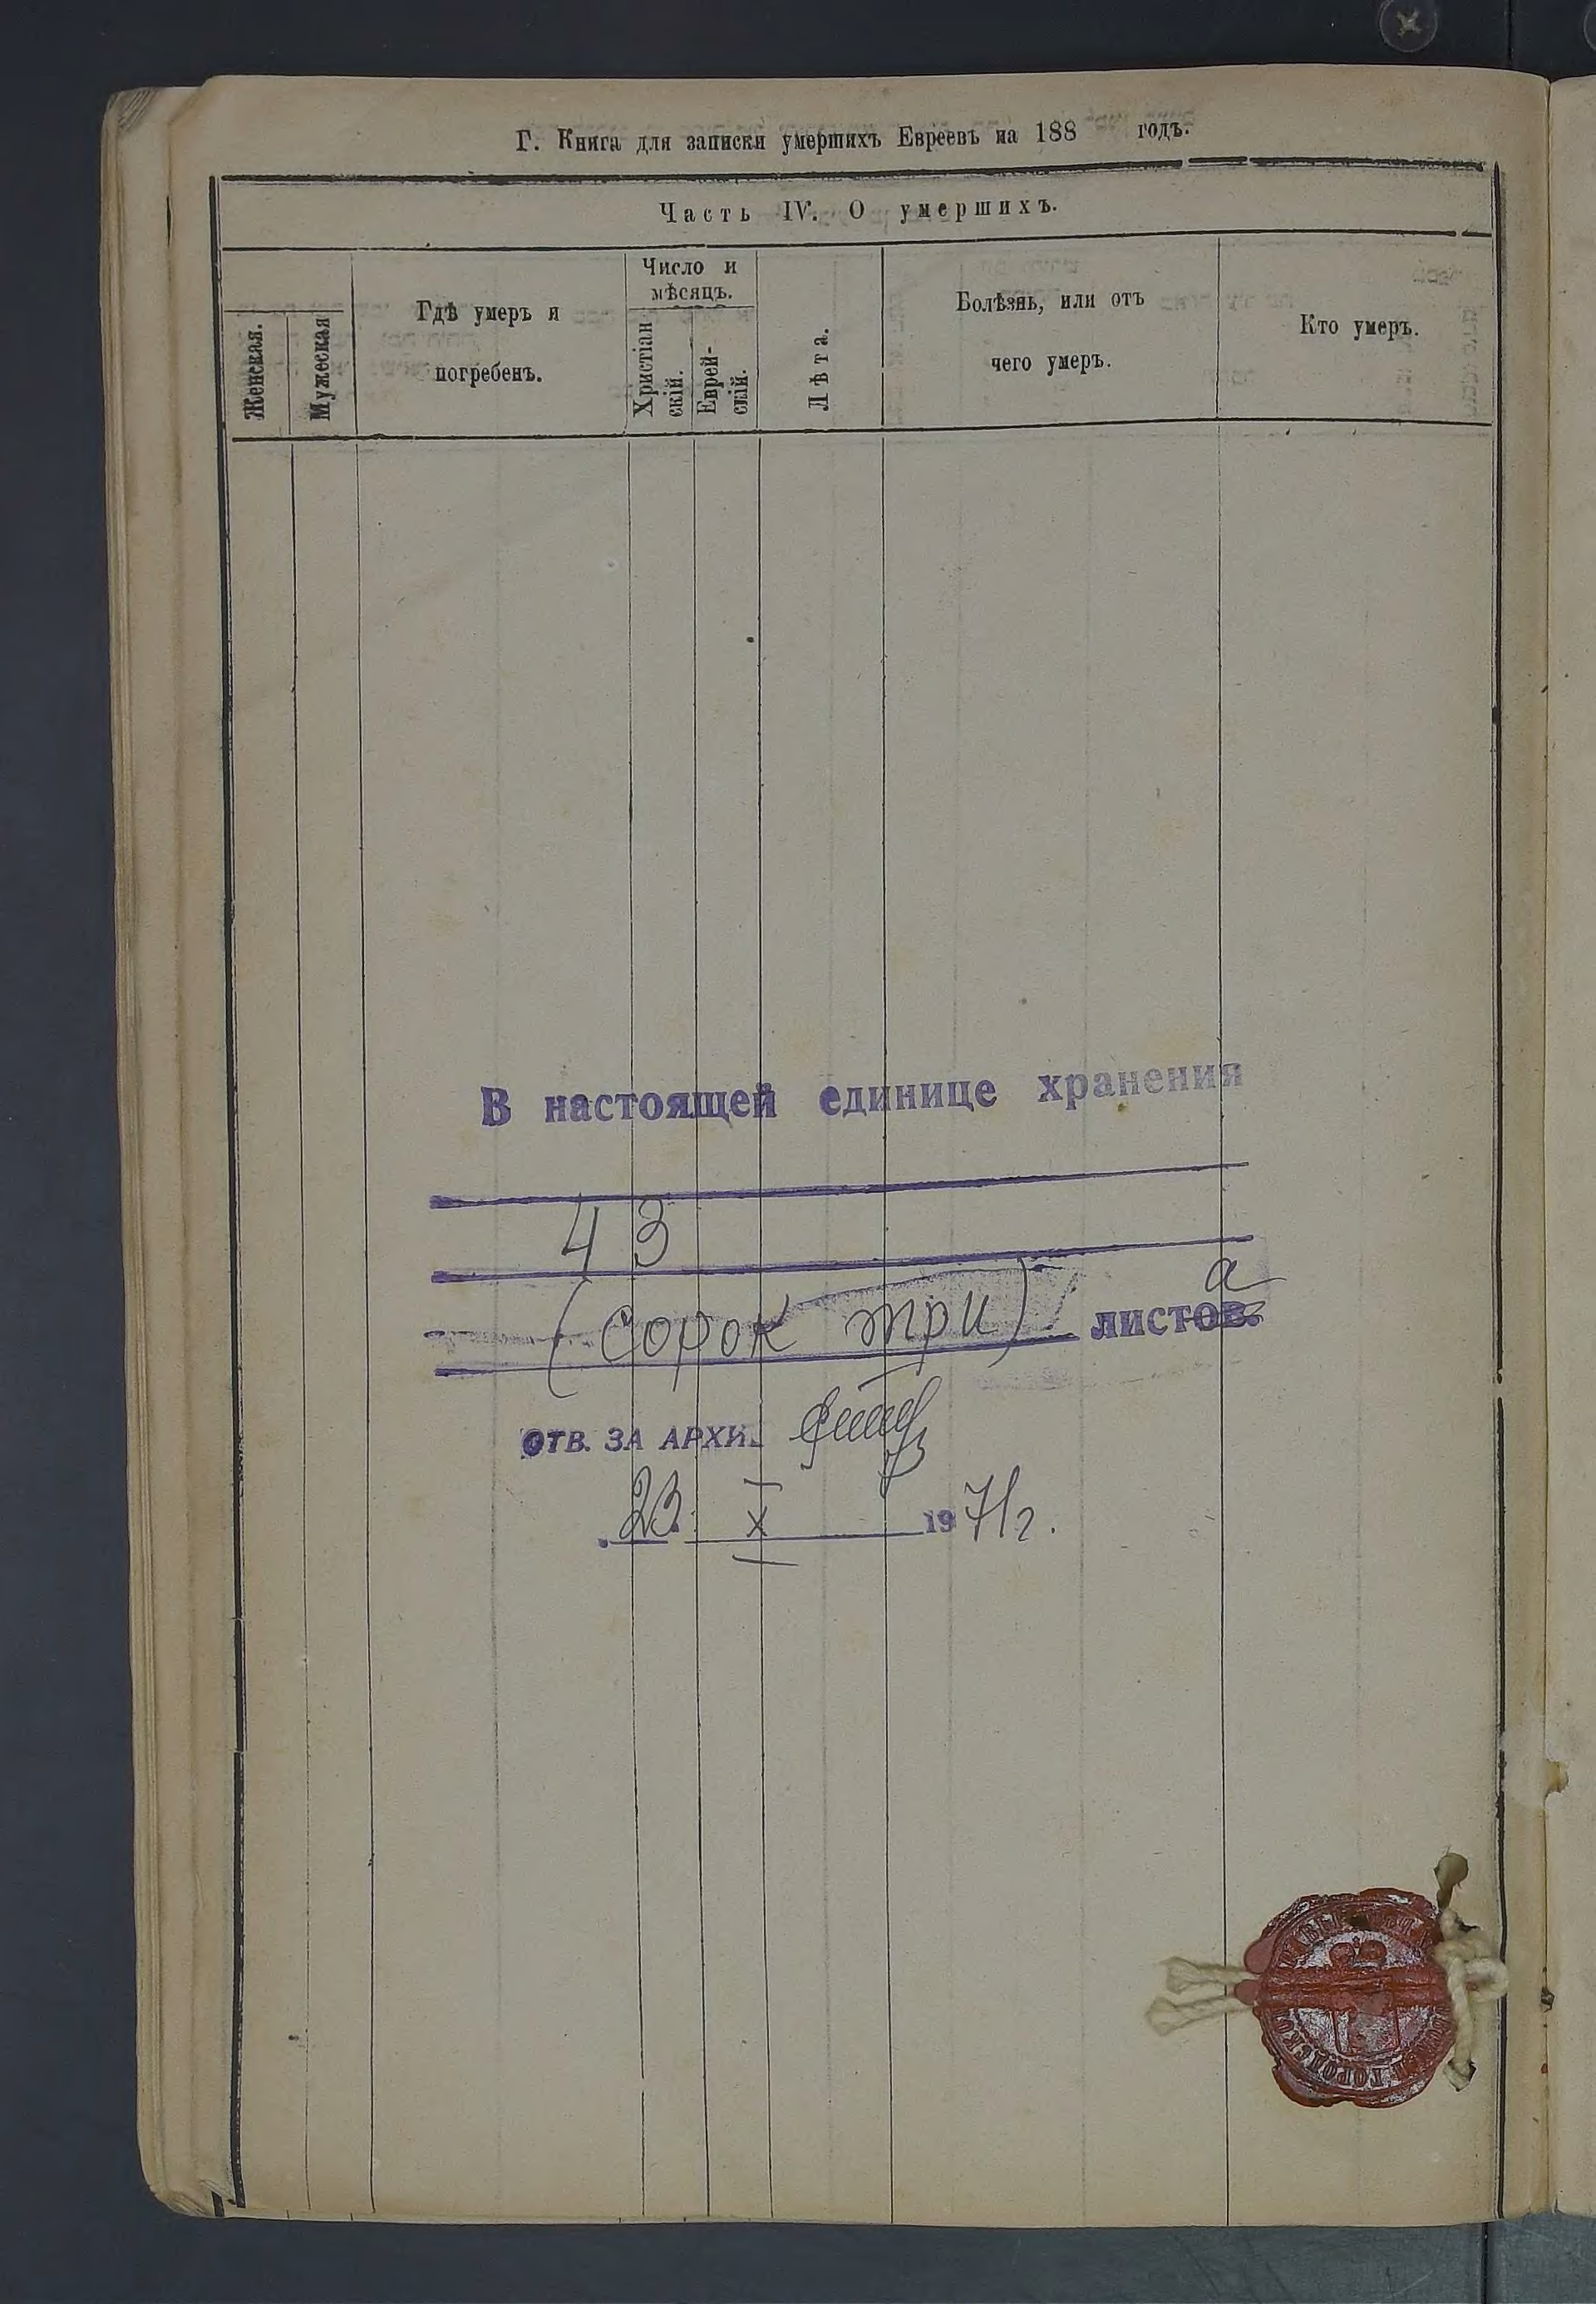 Г. Книга для записки умершихъ Евреевъ на 188 годъ.
Часть IV. О умершихъ.
Женская.
Мужеская
Гдѣ умеръ и
погребенъ.
Число и
мѣсяцъ.
Христіан
скій.
Еврей-
скій.
Лѣта.
Болѣзнь, или отъ
чего умеръ.
Кто умеръ.
В настоящей единице хранения
43
(сорок три) листов.
а
ОТВ. ЗА АРХИ
23. X 1971г.